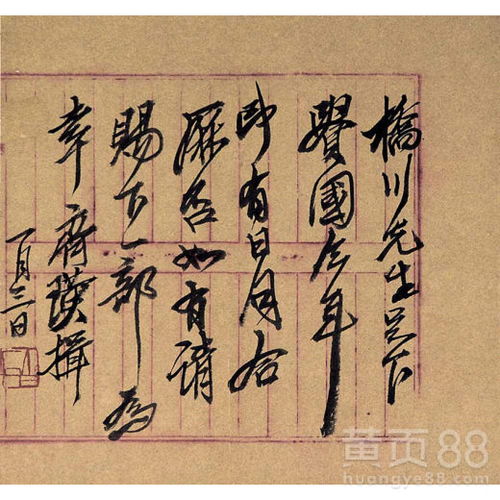 橋川先生足下
貴國今年
即有日月合
歷否如有請
賜下一部為
幸 齊璜揖
一月三日
黄页88
huangye88.com